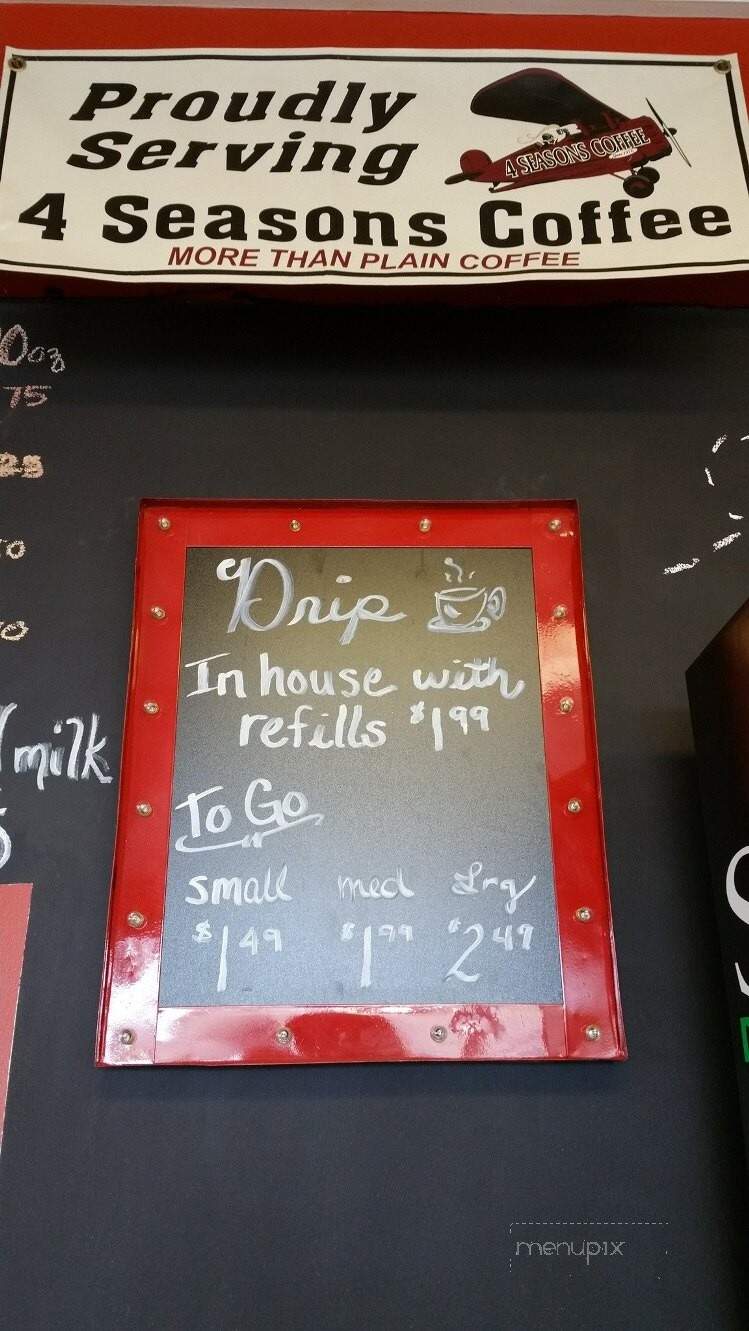 Proudly
Serving
4 Seasons Coffee
MORE THAN PLAIN COFFEE
4 SEASONS COFFEE
0oz
75
25
milk
Drip
In house with
refills $1.99
To Go
small med Lrg
$1.49 $1.99 $2.49
menupix